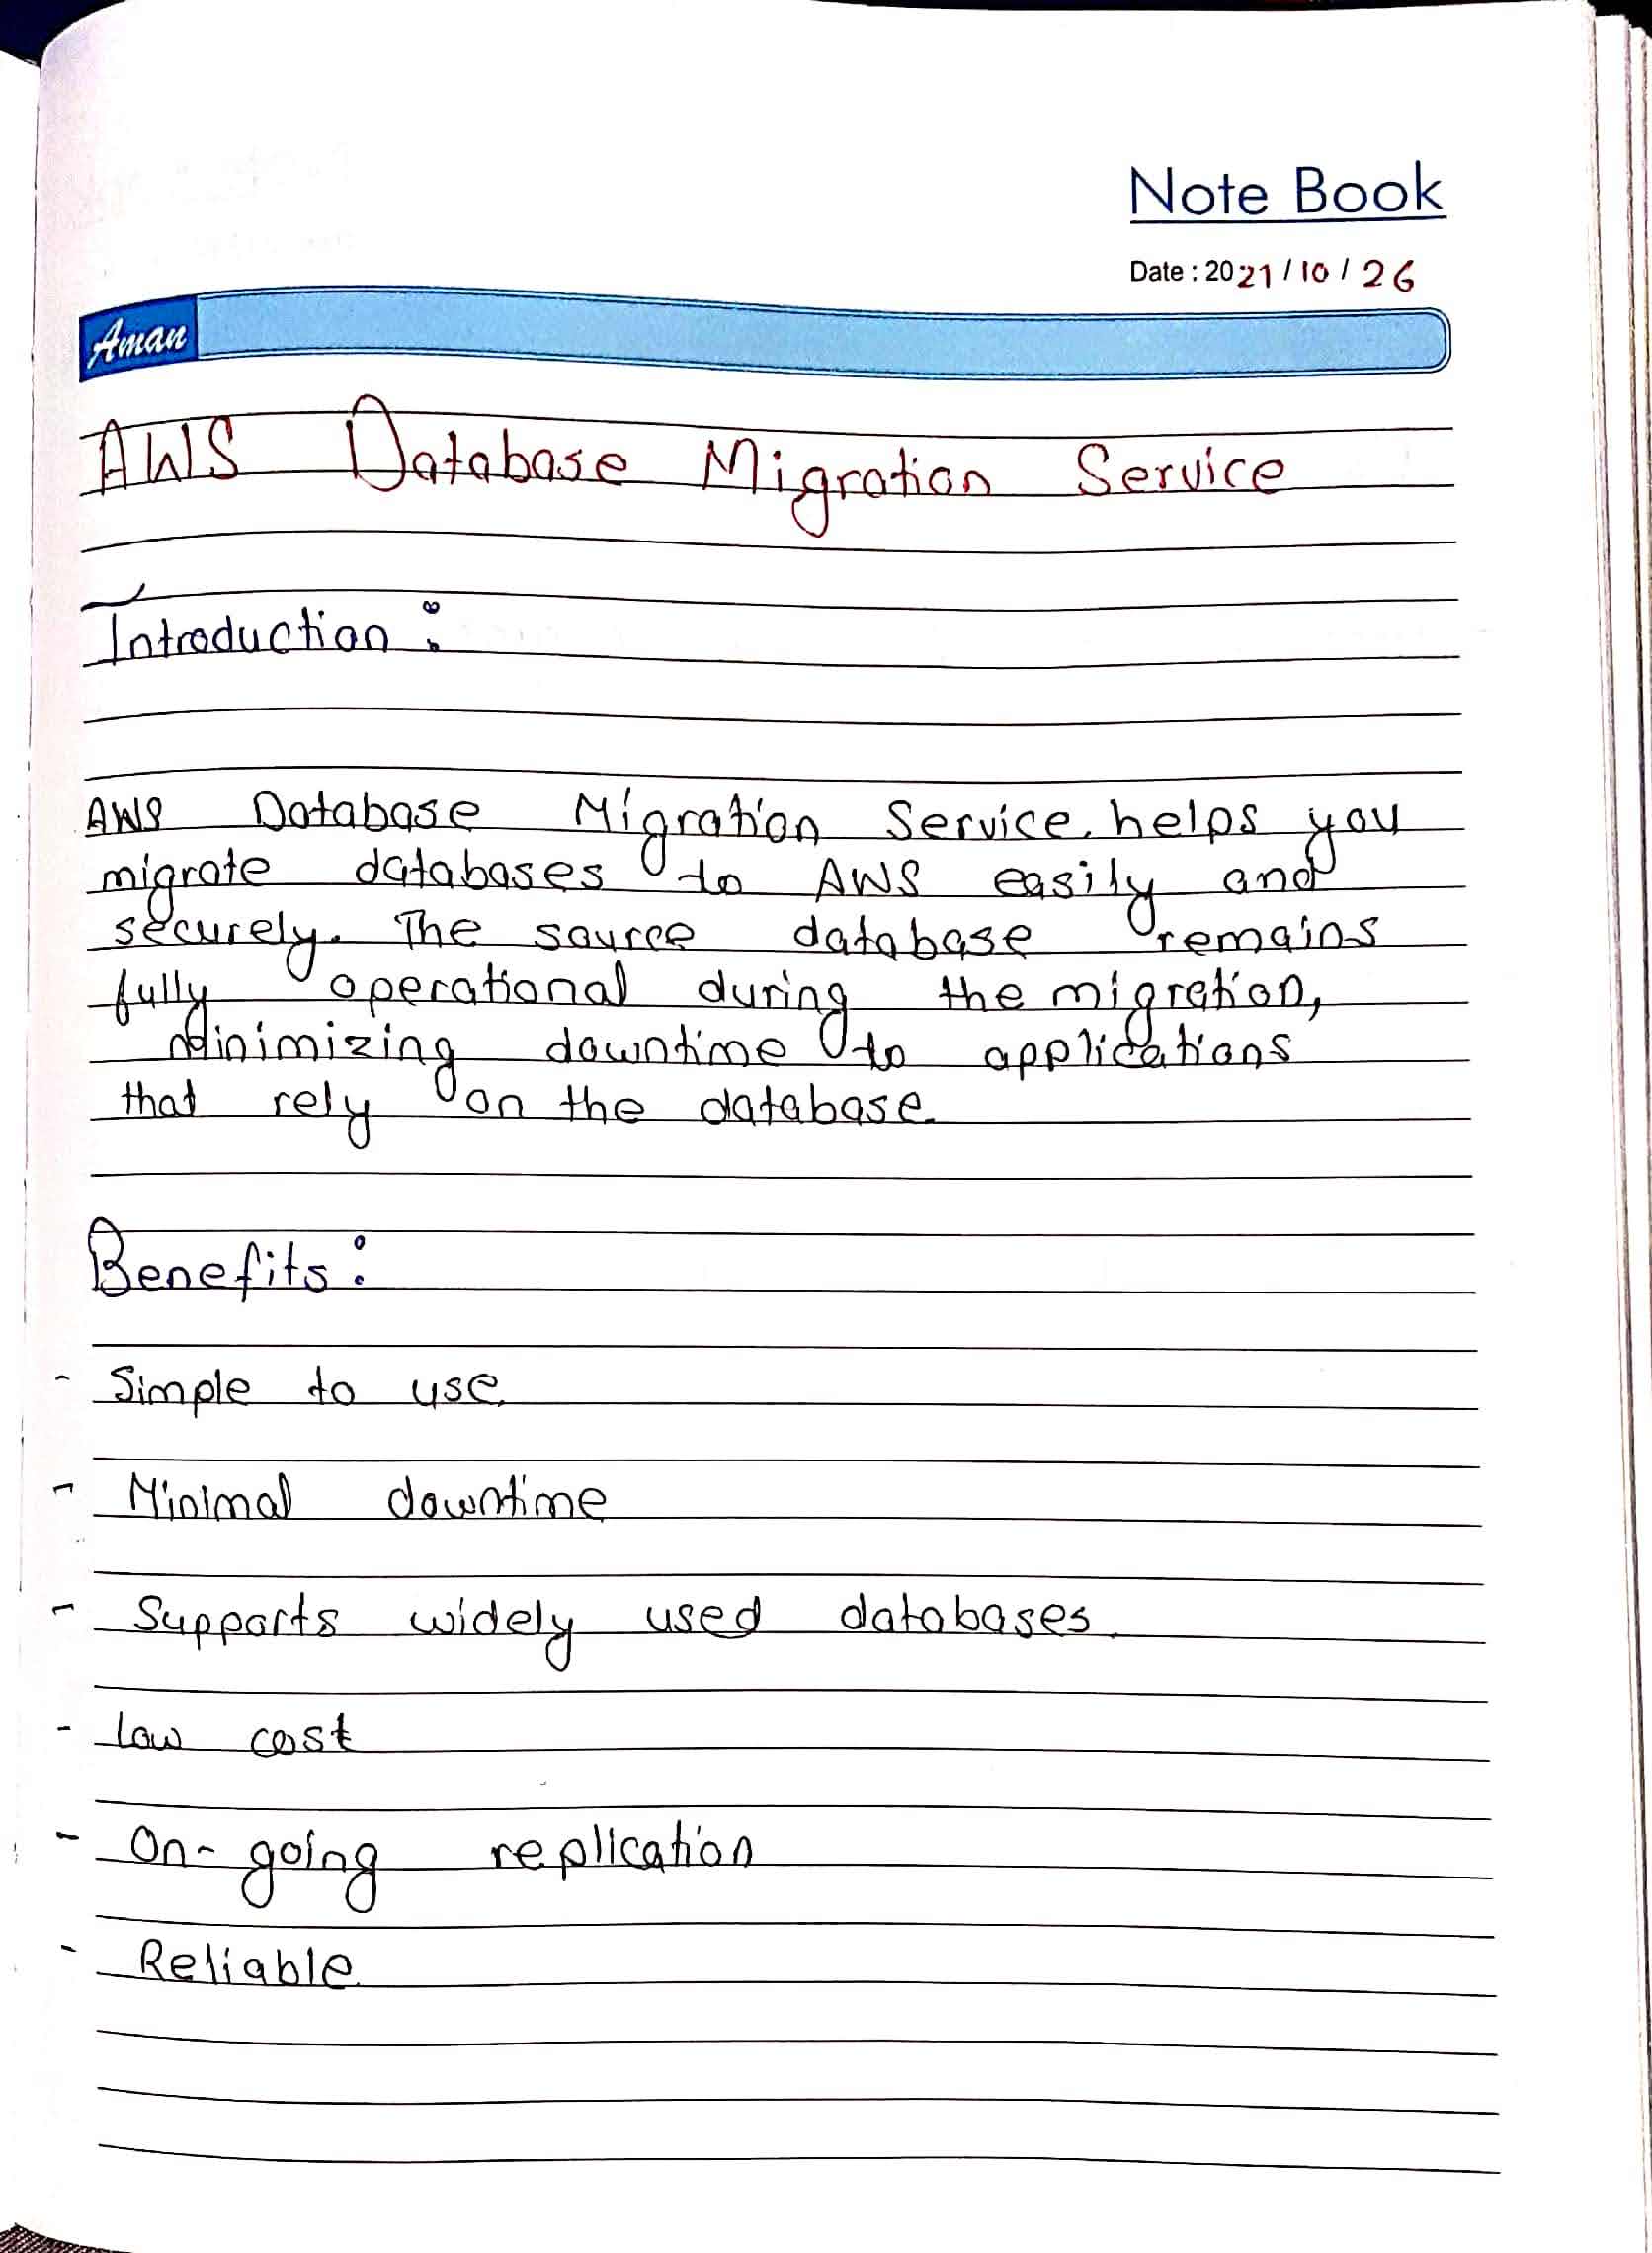 Note Book
Date : 2021 / 10 / 26
Aman
AWS Database Migration Service
Introduction :
AWS Database Migration Service helps you
migrate databases to AWS easily and
securely. The source database remains
fully operational during the migration,
Minimizing downtime to applications
that rely on the database.
Benefits :
- Simple to use.
- Minimal downtime
- Supports widely used databases.
- low cost
- On-going replication
- Reliable.